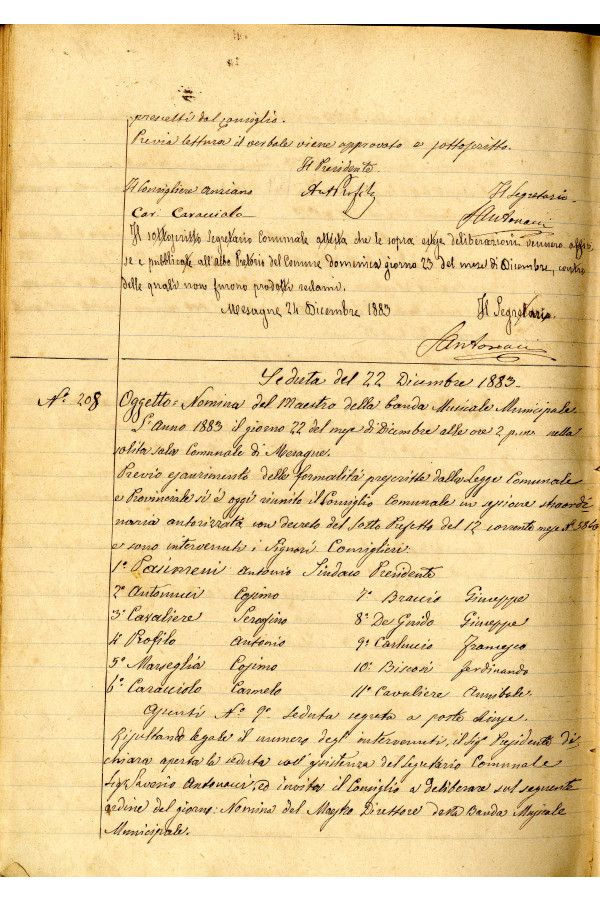 prescelti dal Consiglio.
Previa lettura il verbale viene approvato e sottoscritto.
Il Presidente
Il Consigliere anziano Ant Profilo Il Segretario
Car. Caracciolo SAntonucci
Il sottoscritto Segretario Comunale attesta che le sopra estese deliberazioni vennero affis-
se e pubblicate all'albo Pretorio del Comune domenica giorno 23 del mese di Dicembre, contro
delle quali non furono prodotti reclami.
Mesagne 24 Dicembre 1883 Il Segretario
SAntonucci
Seduta del 22 Dicembre 1883-
N° 208 Oggetto= Nomina del Maestro della banda Musicale Municipale
L'Anno 1883 il giorno 22 del mese di Dicembre alle ore 2 p.m. nella
solita sala Comunale di Mesagne.
Previo esaurimento delle formalità prescritte dalla Legge Comunale
e Provinciale si è oggi riunito il Consiglio Comunale in sessione straordi
naria autorizzata con decreto del Sotto Prefetto del 12 corrente mese N°
e sono intervenuti i Signori Consiglieri:
1° Pasimeni Antonio Sindaco Presidente
2° Antonucci Cosimo 7° Braccio Giuseppe
3° Cavaliere Serafino 8° De Guido Giuseppe
4° Profilo Antonio 9° Carluccio Francesco
5° Marseglia Cosimo 10° Bisconi Ferdinando
6° Caracciolo Carmelo 11° Cavaliere Annibale.
Assenti N° 9° Seduta segreta a porte chiuse.
Risultando legale il numero degl'intervenuti, il Sig. Presidente di
chiara aperta la seduta coll'assistenza del Segretario Comunale
Sig. Saverio Antonucci, ed invita il Consiglio a deliberare sul seguente
ordine del giorno: Nomina del Maestro Direttore della Banda Musicale
Municipale.